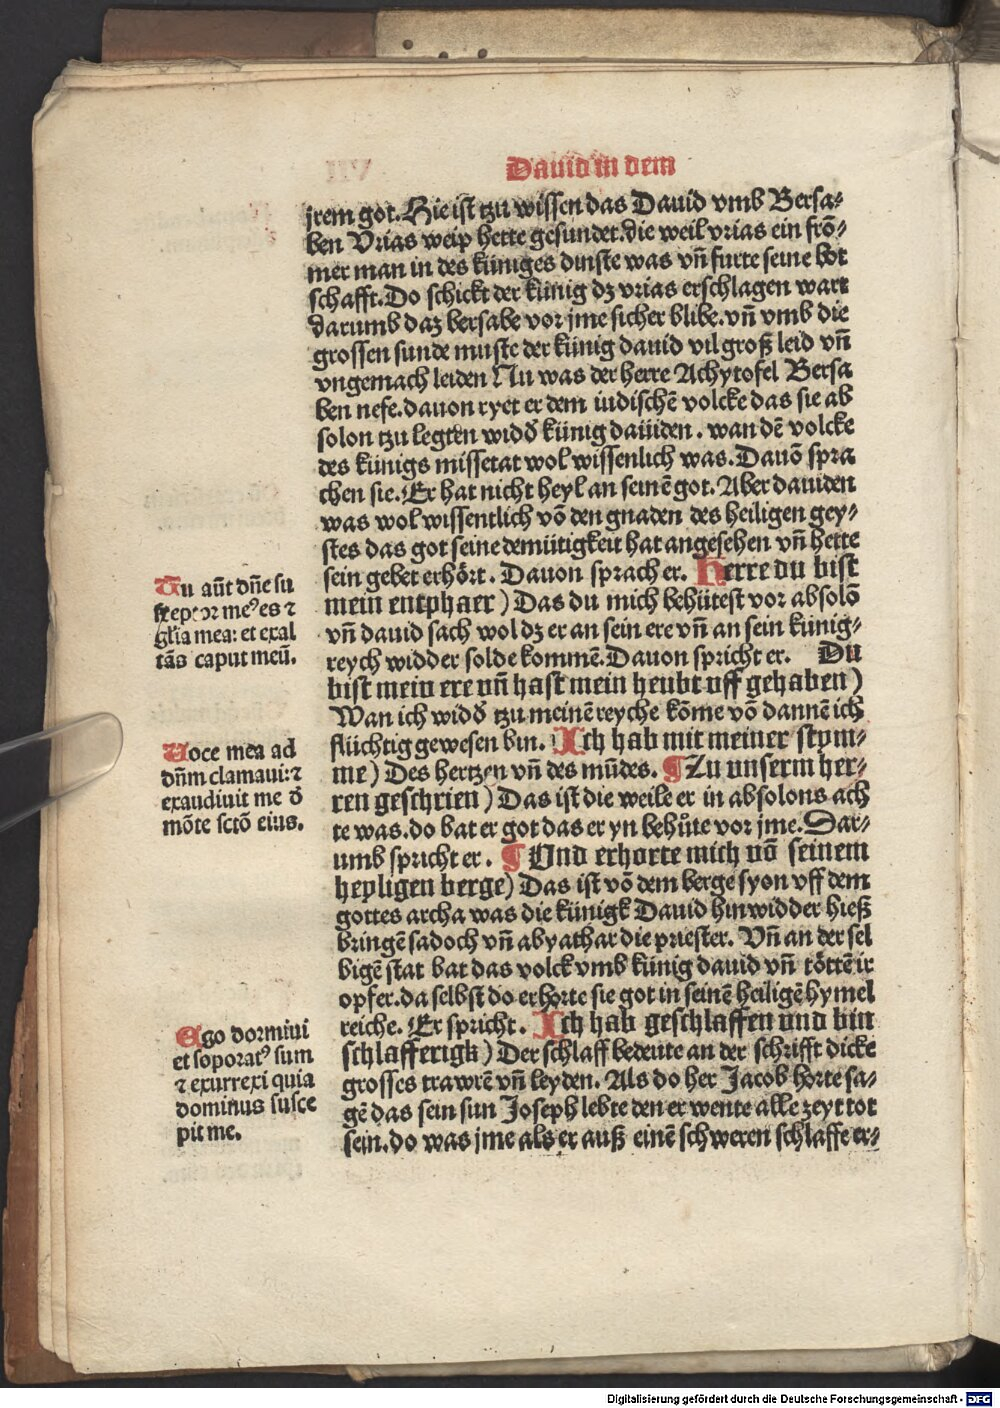 Dauid in dem
jrem got. Hie ist tzu wissen das Dauid vmb Bersa-
ben Vrias weip hette gesundet. die weil vrias ein frō-
mer man in des küniges dinste was vn̄ furte seine bot
schafft. Do schickt der künig dz vrias erschlagen wart
darumb daz bersabe vor jme sicher blibe. vn̄ vmb die
grossen sunde muste der künig dauid vil groß leid vn̄
vngemach leiden Nu was der herre Achytofel Bersa
ben nefe. dauon ryet er dem iudischē volcke das sie ab
solon tzu legten widđ künig dauiden. wan dē volcke
des künigs missetat wol wissenlich was. Dauō spra
chen sie. Er hat nicht heyl an seinē got. Aber dauiden
was wol wissentlich vō den gnaden des heiligen gey-
stes das got seine demütigkeit hat angesehen vn̄ hette
sein gebet erhört. Dauon sprach er. Herre du bist
mein entphaer) Das du mich behütest vor absolō
vn̄ dauid sach wol dz er an sein ere vn̄ an sein künig-
reych widder solde kommē. Dauon spricht er. Du
bist mein ere vn̄ hast mein heubt vff gehaben)
Wan ich widđ tzu meinē reyche kōme vō dannē ich
flüchtig gewesen bin. Ich hab mit meiner stym-
me) Des hertzen vn̄ des mūdes. ¶ Zu unserm her-
ren geschrien) Das ist die weile er in absolons ach
te was. do bat er got das er yn behůte vor jme. Dar-
umb spricht er. ¶ Und erhorte mich vō seinem
heyligen berge) Das ist vō dem berge syon vff dem
gottes archa was die künigk Dauid hin widder hieß
bringē sadoch vn̄ abyathar die priester. Vn̄ an der sel
bigē stat bat das volck vmb künig dauid vn̄ töttē ir
opfer. da selbst do erhorte sie got in seinē heiligē hymel
reiche. Er spricht. Ich hab geschlaffen und bin
schlafferigk) Der schlaff bedeute an der schrifft dicke
grosses trawrē vn̄ leyden. Als do her Jacob horte sa-
gē das sein sun Joseph lebte den er wente alle zeyt tot
sein. do was jme als er auß einē schweren schlaffe er-
Tu aūt dn̄e su
sceptor meꝰ es ⁊
gl̄ia mea: et exal
tās caput meū.
Uoce mea ad
dn̄m clamaui: ⁊
exaudiuit me đ
mōte sctō eius.
Ego dormiui
et soporatꝰ sum
⁊ exurrexi quia
dominus susce
pit me.
Digitalisierung gefördert durch die Deutsche Forschungsgemeinschaft - DFG